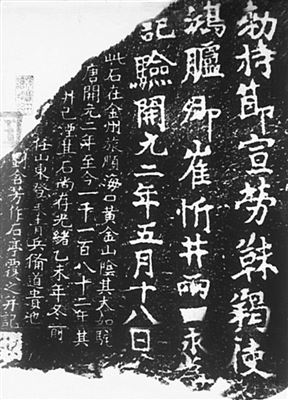 勅持節宣勞靺鞨使
鴻臚卿崔忻井兩口永為
記驗開元二年五月十八日
此石在金州旅順海口黃金山陰其大如駝
唐開元二年至今一千一百八十二年其
井已湮其石尚存光緒乙未年冬前
任山東登萊青兵備道貴池
劉含芳作石亭覆之并記